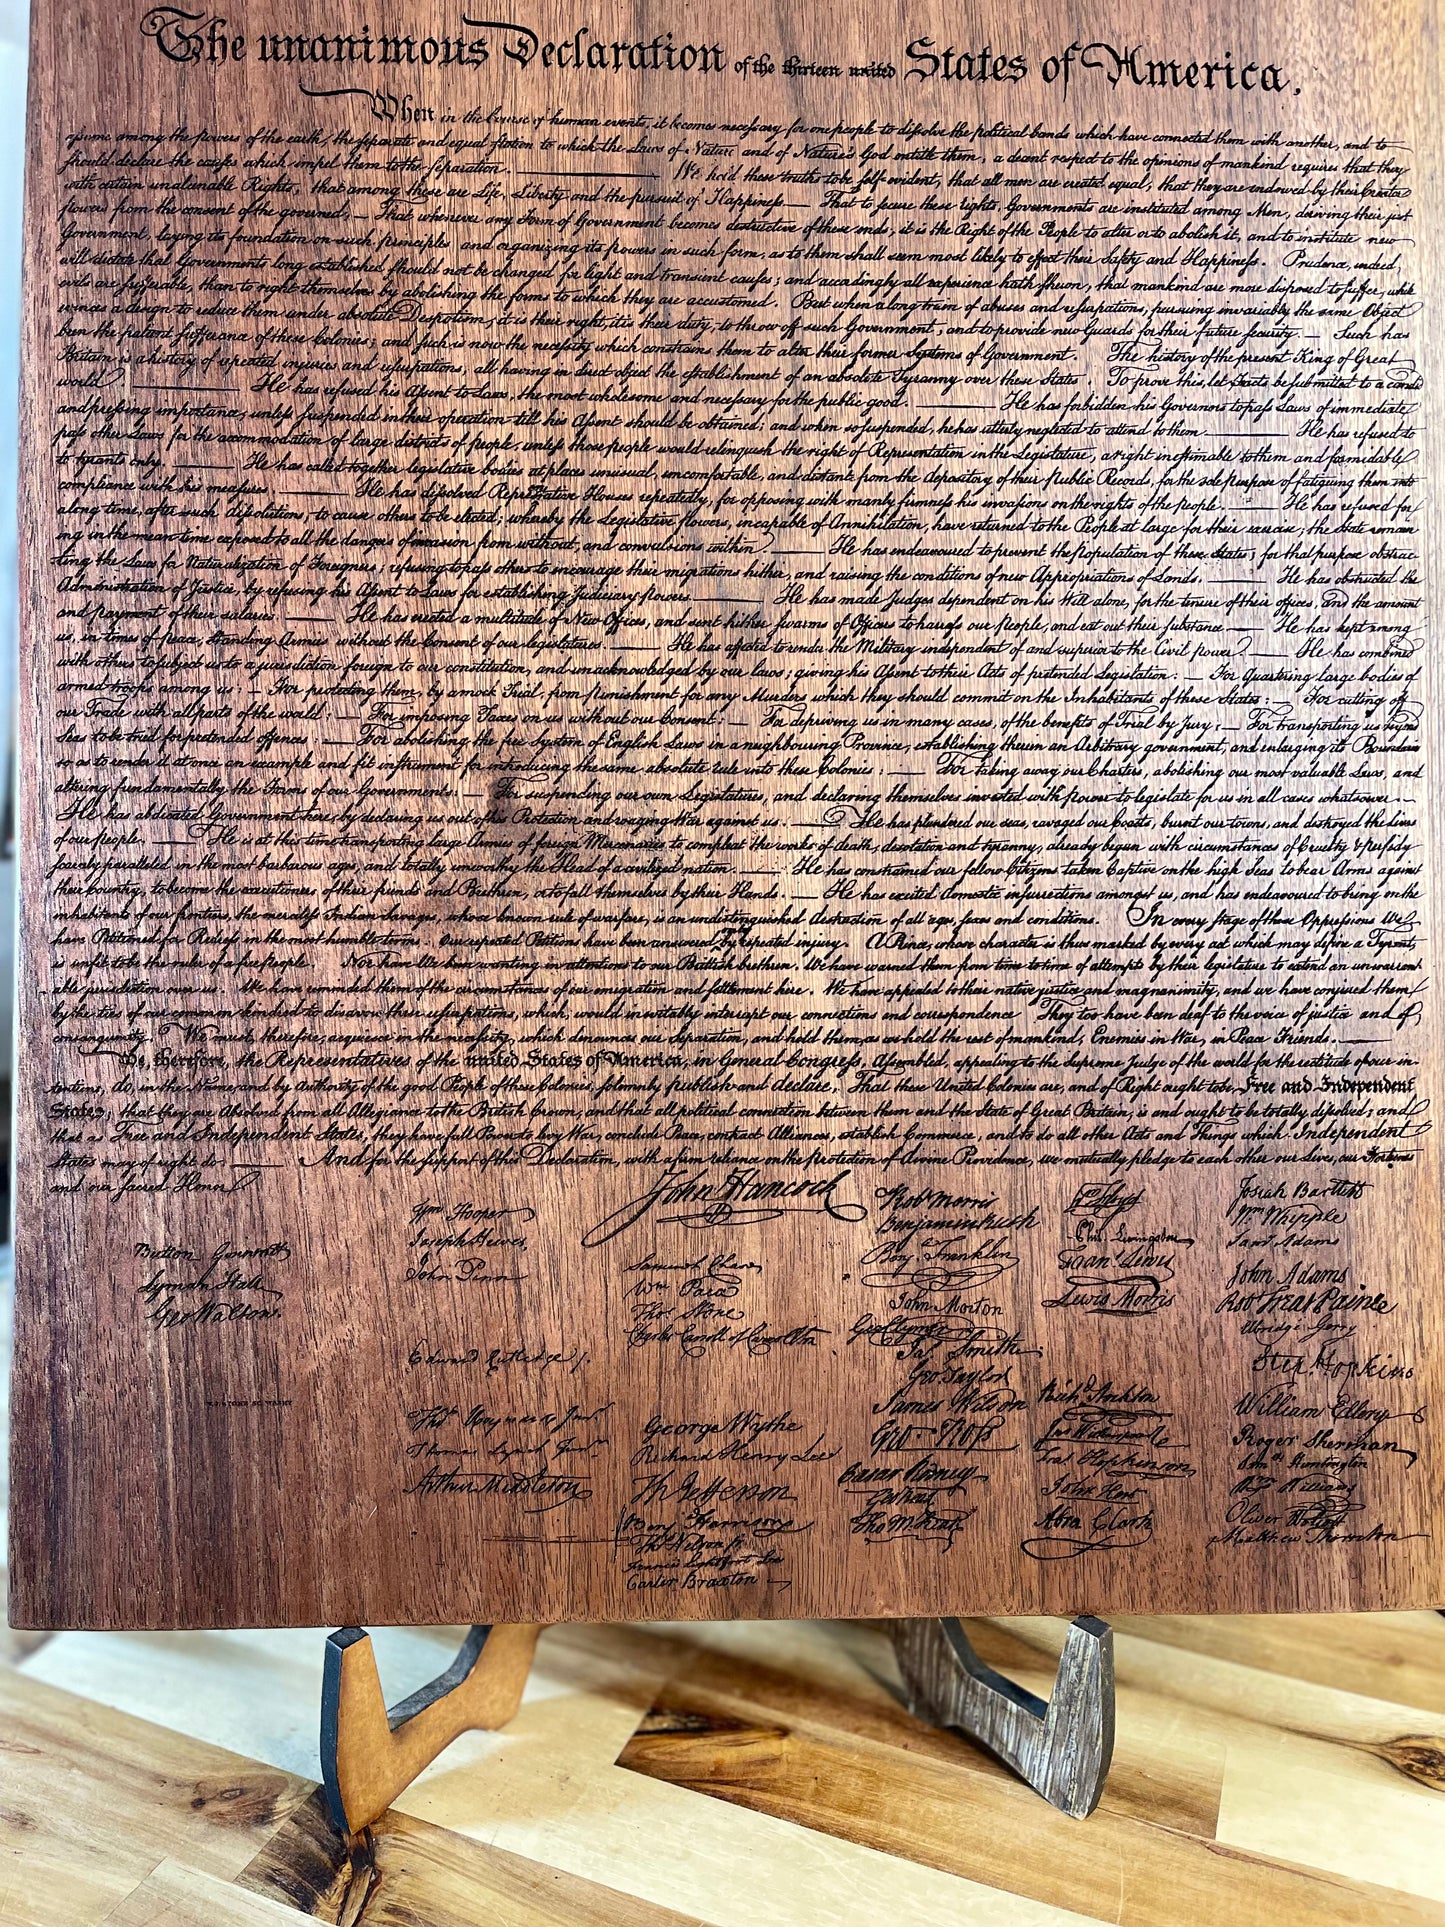 The unanimous Declaration of the thirteen united States of America,
When in the Course of human events, it becomes necessary for one people to dissolve the political bands which have connected them with another, and to
assume among the powers of the earth, the separate and equal station to which the Laws of Nature and of Nature's God entitle them, a decent respect to the opinions of mankind requires that they
should declare the causes which impel them to the separation. We hold these truths to be self-evident, that all men are created equal, that they are endowed by their Creator
with certain unalienable Rights, that among these are Life, Liberty and the pursuit of Happiness — That to secure these rights, Governments are instituted among Men, deriving their just
powers from the consent of the governed, — That whenever any Form of Government becomes destructive of these ends, it is the Right of the People to alter or to abolish it, and to institute new
Government, laying its foundation on such principles and organizing its powers in such form, as to them shall seem most likely to effect their Safety and Happiness. Prudence, indeed,
will dictate that Governments long established should not be changed for light and transient causes; and accordingly all experience hath shewn, that mankind are more disposed to suffer, while
evils are sufferable, than to right themselves by abolishing the forms to which they are accustomed. But when a long train of abuses and usurpations, pursuing invariably the same Object
evinces a design to reduce them under absolute Despotism, it is their right, it is their duty, to throw off such Government, and to provide new Guards for their future security. — Such has
been the patient sufferance of these Colonies; and such is now the necessity which constrains them to alter their former Systems of Government. The history of the present King of Great
Britain is a history of repeated injuries and usurpations, all having in direct object the establishment of an absolute Tyranny over these States. To prove this, let Facts be submitted to a candid
world. He has refused his Assent to Laws, the most wholesome and necessary for the public good. He has forbidden his Governors to pass Laws of immediate
and pressing importance, unless suspended in their operation till his Assent should be obtained; and when so suspended, he has utterly neglected to attend to them. He has refused to
pass other Laws for the accommodation of large districts of people, unless those people would relinquish the right of Representation in the Legislature, a right inestimable to them and formidable
to tyrants only. He has called together legislative bodies at places unusual, uncomfortable, and distant from the depository of their Public Records, for the sole purpose of fatiguing them into
compliance with his measures. He has dissolved Representative Houses repeatedly, for opposing with manly firmness his invasions on the rights of the people. He has refused for
a long time, after such dissolutions, to cause others to be elected; whereby the Legislative powers, incapable of Annihilation, have returned to the People at large for their exercise; the State remain
ing in the mean time exposed to all the dangers of invasion from without, and convulsions within. He has endeavoured to prevent the population of these States; for that purpose obstruc-
ting the Laws for Naturalization of Foreigners; refusing to pass others to encourage their migrations hither, and raising the conditions of new Appropriations of Lands. He has obstructed the
Administration of Justice, by refusing his Assent to Laws for establishing Judiciary powers. He has made Judges dependent on his Will alone, for the tenure of their offices, and the amount
and payment of their salaries. He has erected a multitude of New Offices, and sent hither swarms of Officers to harass our people, and eat out their substance. He has kept among
us, in times of peace, Standing Armies without the Consent of our legislatures. He has affected to render the Military independent of and superior to the Civil power. He has combined
with others to subject us to a jurisdiction foreign to our constitution, and unacknowledged by our laws; giving his Assent to their Acts of pretended Legislation: — For Quartering large bodies of
armed troops among us: — For protecting them, by a mock Trial, from punishment for any Murders which they should commit on the Inhabitants of these States: — For cutting off
our Trade with all parts of the world: — For imposing Taxes on us without our Consent: — For depriving us in many cases, of the benefits of Trial by Jury: — For transporting us beyond
Seas to be tried for pretended offences — For abolishing the free System of English Laws in a neighbouring Province, establishing therein an Arbitrary government, and enlarging its Boundaries
so as to render it at once an example and fit instrument for introducing the same absolute rule into these Colonies: — For taking away our Charters, abolishing our most valuable Laws, and
altering fundamentally the Forms of our Governments: — For suspending our own Legislatures, and declaring themselves invested with power to legislate for us in all cases whatsoever. —
He has abdicated Government here, by declaring us out of his Protection and waging War against us. — He has plundered our seas, ravaged our Coasts, burnt our towns, and destroyed the lives
of our people. — He is at this time transporting large Armies of foreign Mercenaries to compleat the works of death, desolation and tyranny, already begun with circumstances of Cruelty & perfidy
scarcely paralleled in the most barbarous ages, and totally unworthy the Head of a civilized nation. — He has constrained our fellow Citizens taken Captive on the high Seas to bear Arms against
their Country, to become the executioners of their friends and Brethren, or to fall themselves by their Hands. — He has excited domestic insurrections amongst us, and has endeavoured to bring on the
inhabitants of our frontiers, the merciless Indian Savages, whose known rule of warfare, is an undistinguished destruction of all ages, sexes and conditions. In every stage of these Oppressions We
have Petitioned for Redress in the most humble terms: Our repeated Petitions have been answered only by repeated injury. A Prince, whose character is thus marked by every act which may define a Tyrant,
is unfit to be the ruler of a free People. Nor have We been wanting in attentions to our Brittish brethren. We have warned them from time to time of attempts by their legislature to extend an unwarrant
able jurisdiction over us. We have reminded them of the circumstances of our emigration and settlement here. We have appealed to their native justice and magnanimity, and we have conjured them
by the ties of our common kindred to disavow these usurpations, which, would inevitably interrupt our connections and correspondence They too have been deaf to the voice of justice and of
consanguinity. We must, therefore, acquiesce in the necessity, which denounces our Separation, and hold them, as we hold the rest of mankind, Enemies in War, in Peace Friends.
We, therefore, the Representatives of the united States of America, in General Congress, Assembled, appealing to the Supreme Judge of the world for the rectitude of our in-
tentions, do, in the Name, and by Authority of the good People of these Colonies, solemnly publish and declare, That these United Colonies are, and of Right ought to be Free and Independent
States; that they are Absolved from all Allegiance to the British Crown, and that all political connection between them and the State of Great Britain, is and ought to be totally dissolved; and
that as Free and Independent States, they have full Power to levy War, conclude Peace, contract Alliances, establish Commerce, and to do all other Acts and Things which Independent
States may of right do. And for the support of this Declaration, with a firm reliance on the protection of divine Providence, we mutually pledge to each other our Lives, our Fortunes
and our sacred Honor.
John Hancock
Button Gwinnett
Lyman Hall
Geo Walton.
Wm Hooper
Joseph Hewes,
John Penn
Edward Rutledge /.
Thos Heyward Junr.
Thomas Lynch Junr.
Arthur Middleton
Samuel Chase
Wm Paca
Thos Stone
Charles Carroll of Carrollton
George Wythe
Richard Henry Lee
Th Jefferson
Benj Harrison
Thos Nelson jr.
Francis Lightfoot Lee
Carter Braxton
Robt Morris
Benjamin Rush
Benj. Franklin
John Morton
Geo Clymer
Jas. Smith
Geo. Taylor
James Wilson
Geo. Ross
Caesar Rodney
Geo Read
Tho M:Kean
Wm Floyd
Phil. Livingston
Frans. Lewis
Lewis Morris
Richd Stockton
Jno Witherspoon
Fras. Hopkinson
John Hart
Abra Clark
Josiah Bartlett
Wm Whipple
Saml Adams
John Adams
Robt Treat Paine
Elbridge Gerry
Step. Hopkins
William Ellery
Roger Sherman
Saml Huntington
Wm Williams
Oliver Wolcott
Matthew Thornton
W.J. STONE SC. WASHN